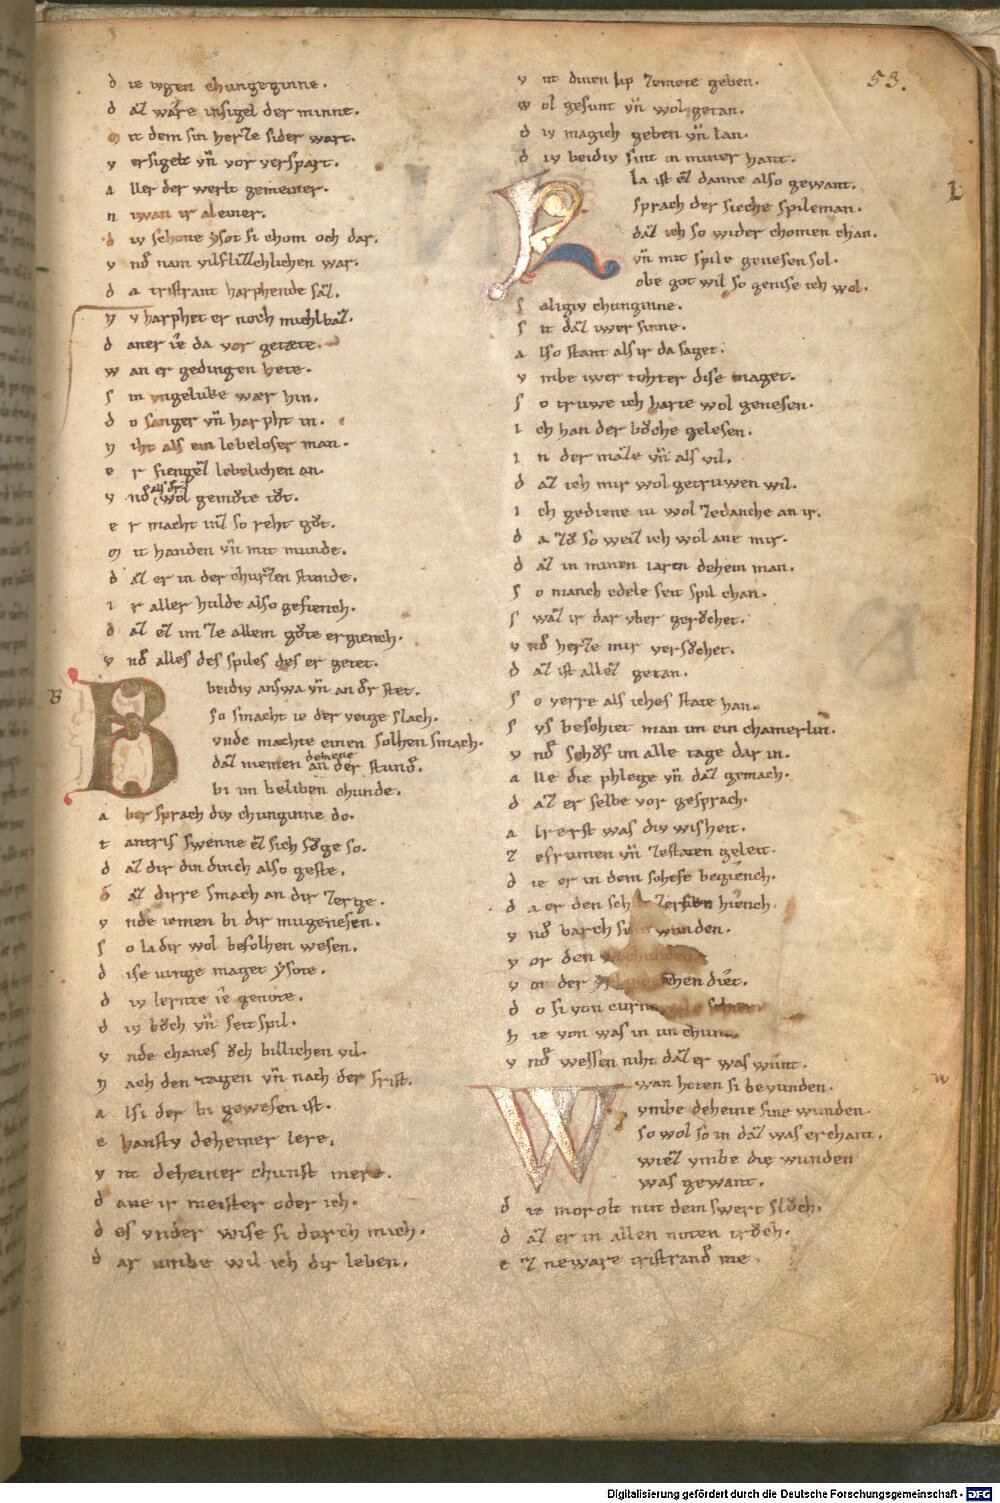 53.
d ie ivgen chungeginne.
d az wáre insigel der minne.
m it dem sin herze sider wart.
v ersigelt vn̄ vor verspart.
a ller der werlt gemeiner.
n iwan ir aleiner.
d iv schone ẏsot si chom och dar.
v nd nam vilflizzchlichen war.
d a tristrant harphende saz.
N v harphet er noch michl baz.
d aner ie da vor getæte.
w an er gedingen hete.
s in vngeluke wær hin.
d o sanger vn̄ harpht in.
N iht als ein lebeloser man.
e r fiengez lebelichen an.
v nd als der wol gemůte tůt.
e r macht inz so reht gůt.
m it handen vn̄ mit munde.
d az er in der churzen stunde.
i r aller hulde also gefiench.
d az ez im ze allem gůte ergiench.
v nd alles des spiles des er getet.
B beidiv answa vn̄ an der stet.
so smachte ie der veige slach.
vnde machte einen solhen smach.
daz niemen deheine an der stund.
bi im beliben chunde.
a ber sprach div chunginne do.
t antris swenne ez sich fůge so.
d az dir din dinch also geste.
d az dirre smach an dir zerge.
v nde iemen bi dir muge nesen.
s o la dir wol befolhen wesen.
d ise iunge maget ẏsote.
d iv lernte ie genote.
d iv bůch vn̄ seitspil.
v nde chanes ůch billichen vil.
N ach den tagen vn̄ nach der frist.
a lsi der bi gewesen ist.
e hanstv deheiner lere.
v nt deheiner chunst mere.
d ane ir meister oder ich.
d es vnder wise si durch mich.
d ar umbe wil ich dir leben.
v nt dinen lip zemete geben.
w ol gesunt vn̄ wolgetan.
d iv magich geben vn̄ lan.
d iv beidiv sint in miner hant.
I la ist ez danne also gewant.
sprach der sieche spileman.
daz ich so wider chomen chan.
vn̄ mit spile genesen sol.
obe got wil so genise ich wol.
s aligiv chunginne.
s it daz iwer sinne.
a lso stant als ir da saget.
v mbe iwer tohter dise maget.
s o truwe ich harte wol genesen.
i ch han der bůche gelesen.
i n der maze vn̄ als vil.
d az ich mir wol getruwen wil.
i ch gediene iu wol zedanche an ir.
d a zů so weiz ich wol ane mir.
d az in minen iaren dehein man.
s o manch edele seit spil chan.
s waz ir dar vber gerůchet.
v nd herze mir versůchet.
d az ist allez getan.
s o verre als iches state han.
s vs beschiet man im ein chamerlin.
v nd schůf im alle tage dar in.
a lle die phlege vn̄ daz gemach.
d az er selbe vor gesprach.
a lrerst was div wisheit.
z efrumen vn̄ zestaten geleit.
d ie er in dem schefe begiench.
d a er den schilt zer siten hiench.
v nd barch sine wunden.
v or den
v or der diet.
d o si von curnewale schiet.
h ie von was in un chunt.
v nd wessen niht daz er was wunt.
W wan heten si bevunden.
vmbe deheine sine wunden.
so wol so in daz was erchant.
wiez vmbe die wunden
was gewant.
d ie morolt mit dem swert slůch.
d az er in allen noten trůch.
e z neware tristrand me
Digitalisierung gefördert durch die Deutsche Forschungsgemeinschaft - DFG